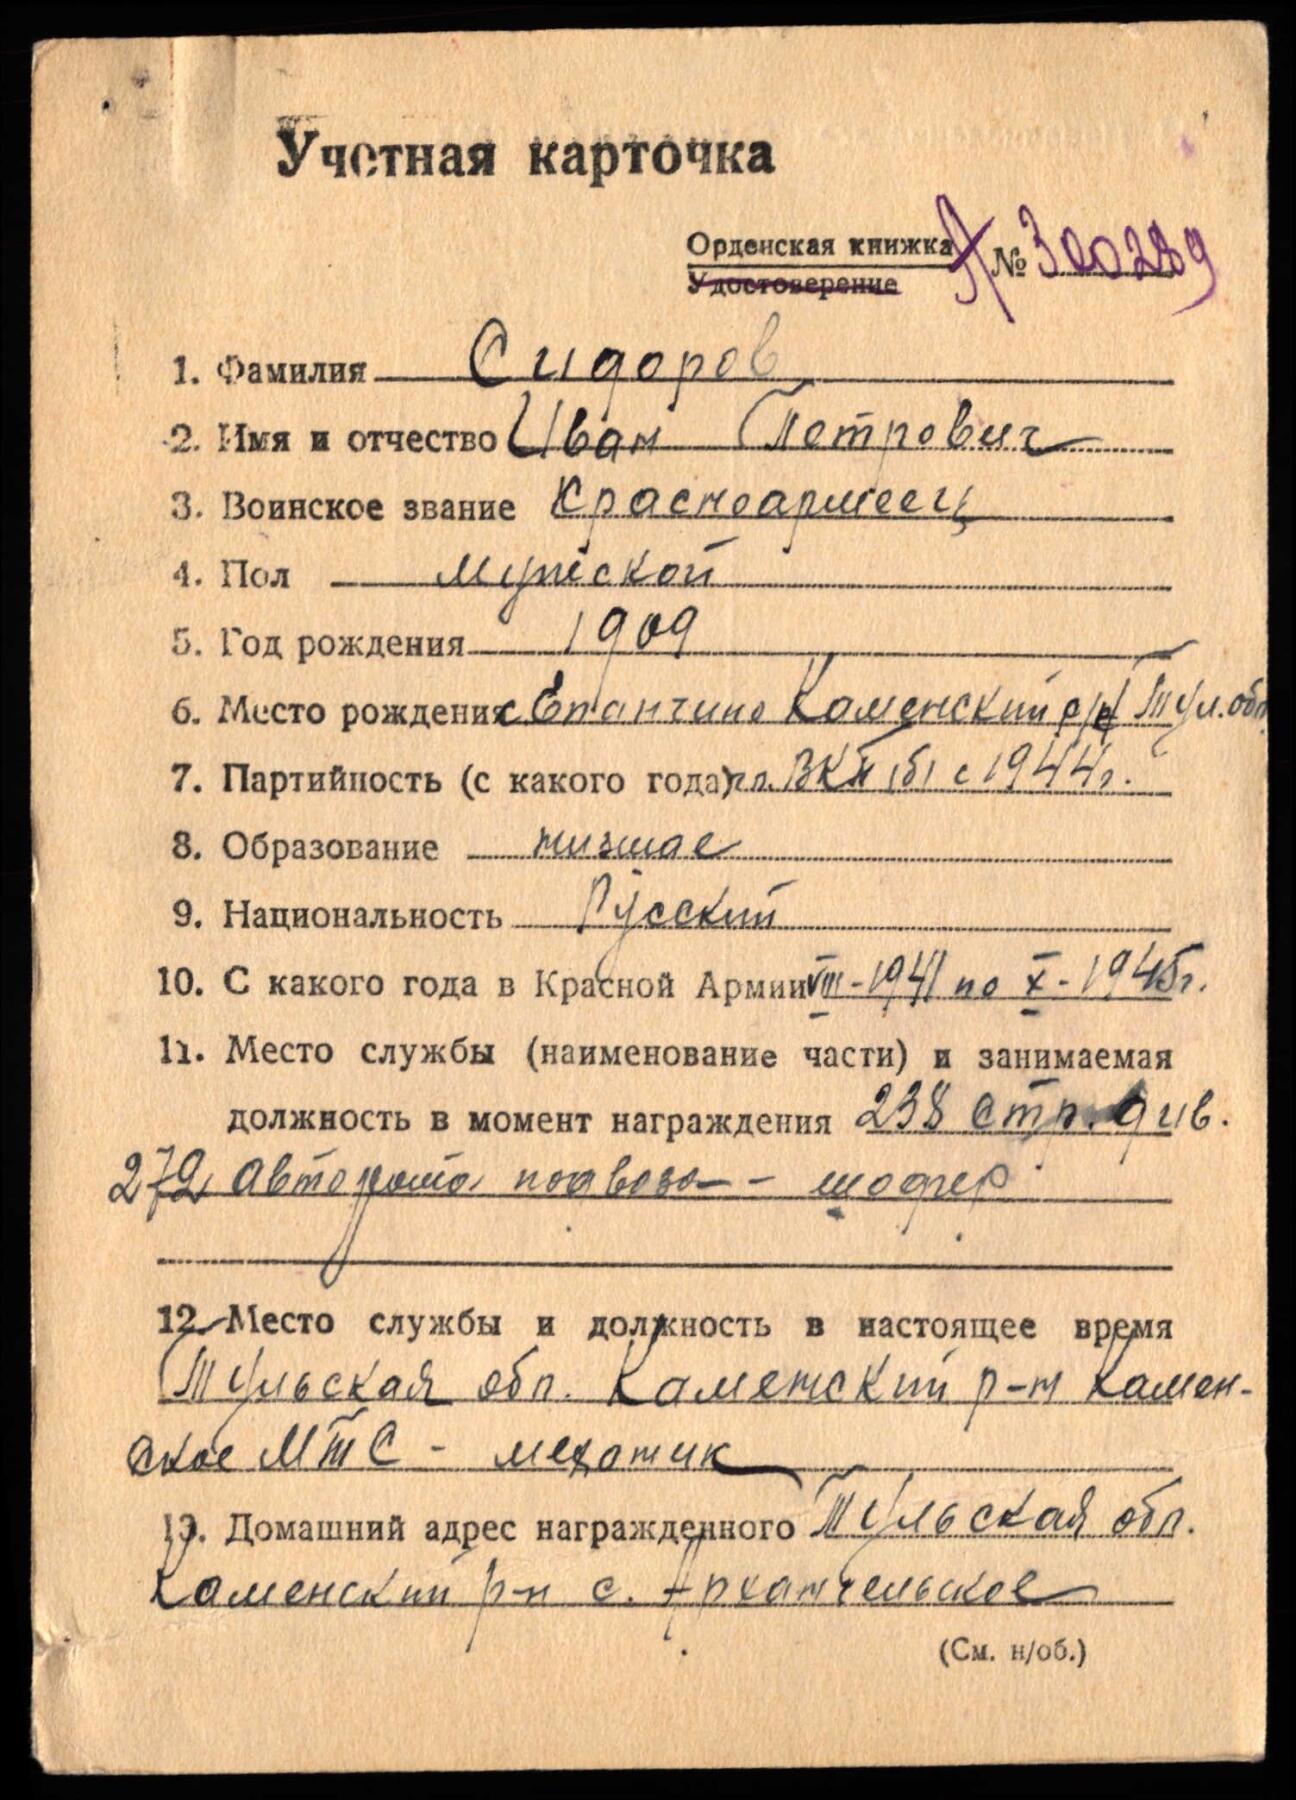 Учетная карточка
Орденская книжка А № 300289
Удостоверение
1. Фамилия Сидоров
2. Имя и отчество Иван Петрович
3. Воинское звание Красноармеец
4. Пол мужской
5. Год рождения 1909
6. Место рождения с Епанчино Каменский р/н Тул. обл.
7. Партийность (с какого года) чл. ВКП(б) с 1944 г.
8. Образование низшае
9. Национальность Русский
10. С какого года в Красной Армии VIII-1941 по X-1945 г.
11. Место службы (наименование части) и занимаемая
должность в момент награждения 238 стр. див.
272 авторота подвоза - шофер
12. Место службы и должность в настоящее время
Тульская обл. Каменский р-н Камен-
ское МТС - механик
13. Домашний адрес награжденного Тульская обл.
Каменский р-н с. Архангельское
(См. н/об.)